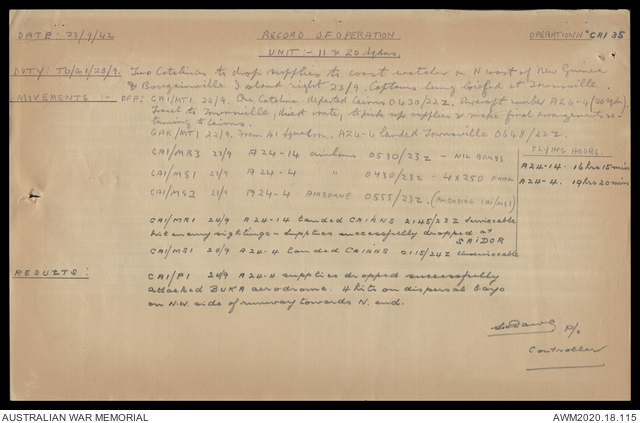 DATE: 22/9/42
RECORD OF OPERATION
OPERATION Nº CAI 35
UNIT:- 11 & 20 Sqdns.
DUTY: TO/61/23/9. Two Catalinas to drop supplies to coast watcher on N coast of New Guinea
& Bougainville Island night 23/9. Captains being briefed at Townsville.
MOVEMENTS :- OFF: CAI/MT1 22/9. One Catalina departed Cairns 0430/22Z. Aircraft number A24-4 (20 Sqdn),
travel to Townsville, direct route, to pick up supplies & make final arrangements re-
turning to Cairns.
GAR/MT1 22/9. From 41 Squadron. A24-4 landed Townsville 0648/22Z.
FLYING HOURS.
CAI/MR3 23/9 A24-14 airborne 0530/23Z - NIL BOMBS
A24-14 - 16 hrs 15 mins
CAI/MS1 23/9 A24-4 " 0430/23Z - 4x250
A24-4. 19 hrs 20 mins
CAI/MS2 23/9 A24-4 AIRBORNE 0555/23Z. (CAI/MS1)
CAI/MR1 24/9 A24-14 landed CAIRNS 2145/23Z Serviceable
Nil enemy sightings - Supplies successfully dropped at
SAIDOR
CAI/MS1 24/9 A24-4 landed CAIRNS 0115/24Z Unserviceable
RESULTS: CAI/P1 24/9 A24-4 supplies dropped successfully
attacked BUKA aerodrome. 4 hits on dispersal bays
on N.W. side of runway towards N. end.
P/o
Controller
AUSTRALIAN WAR MEMORIAL
AWM2020.18.115